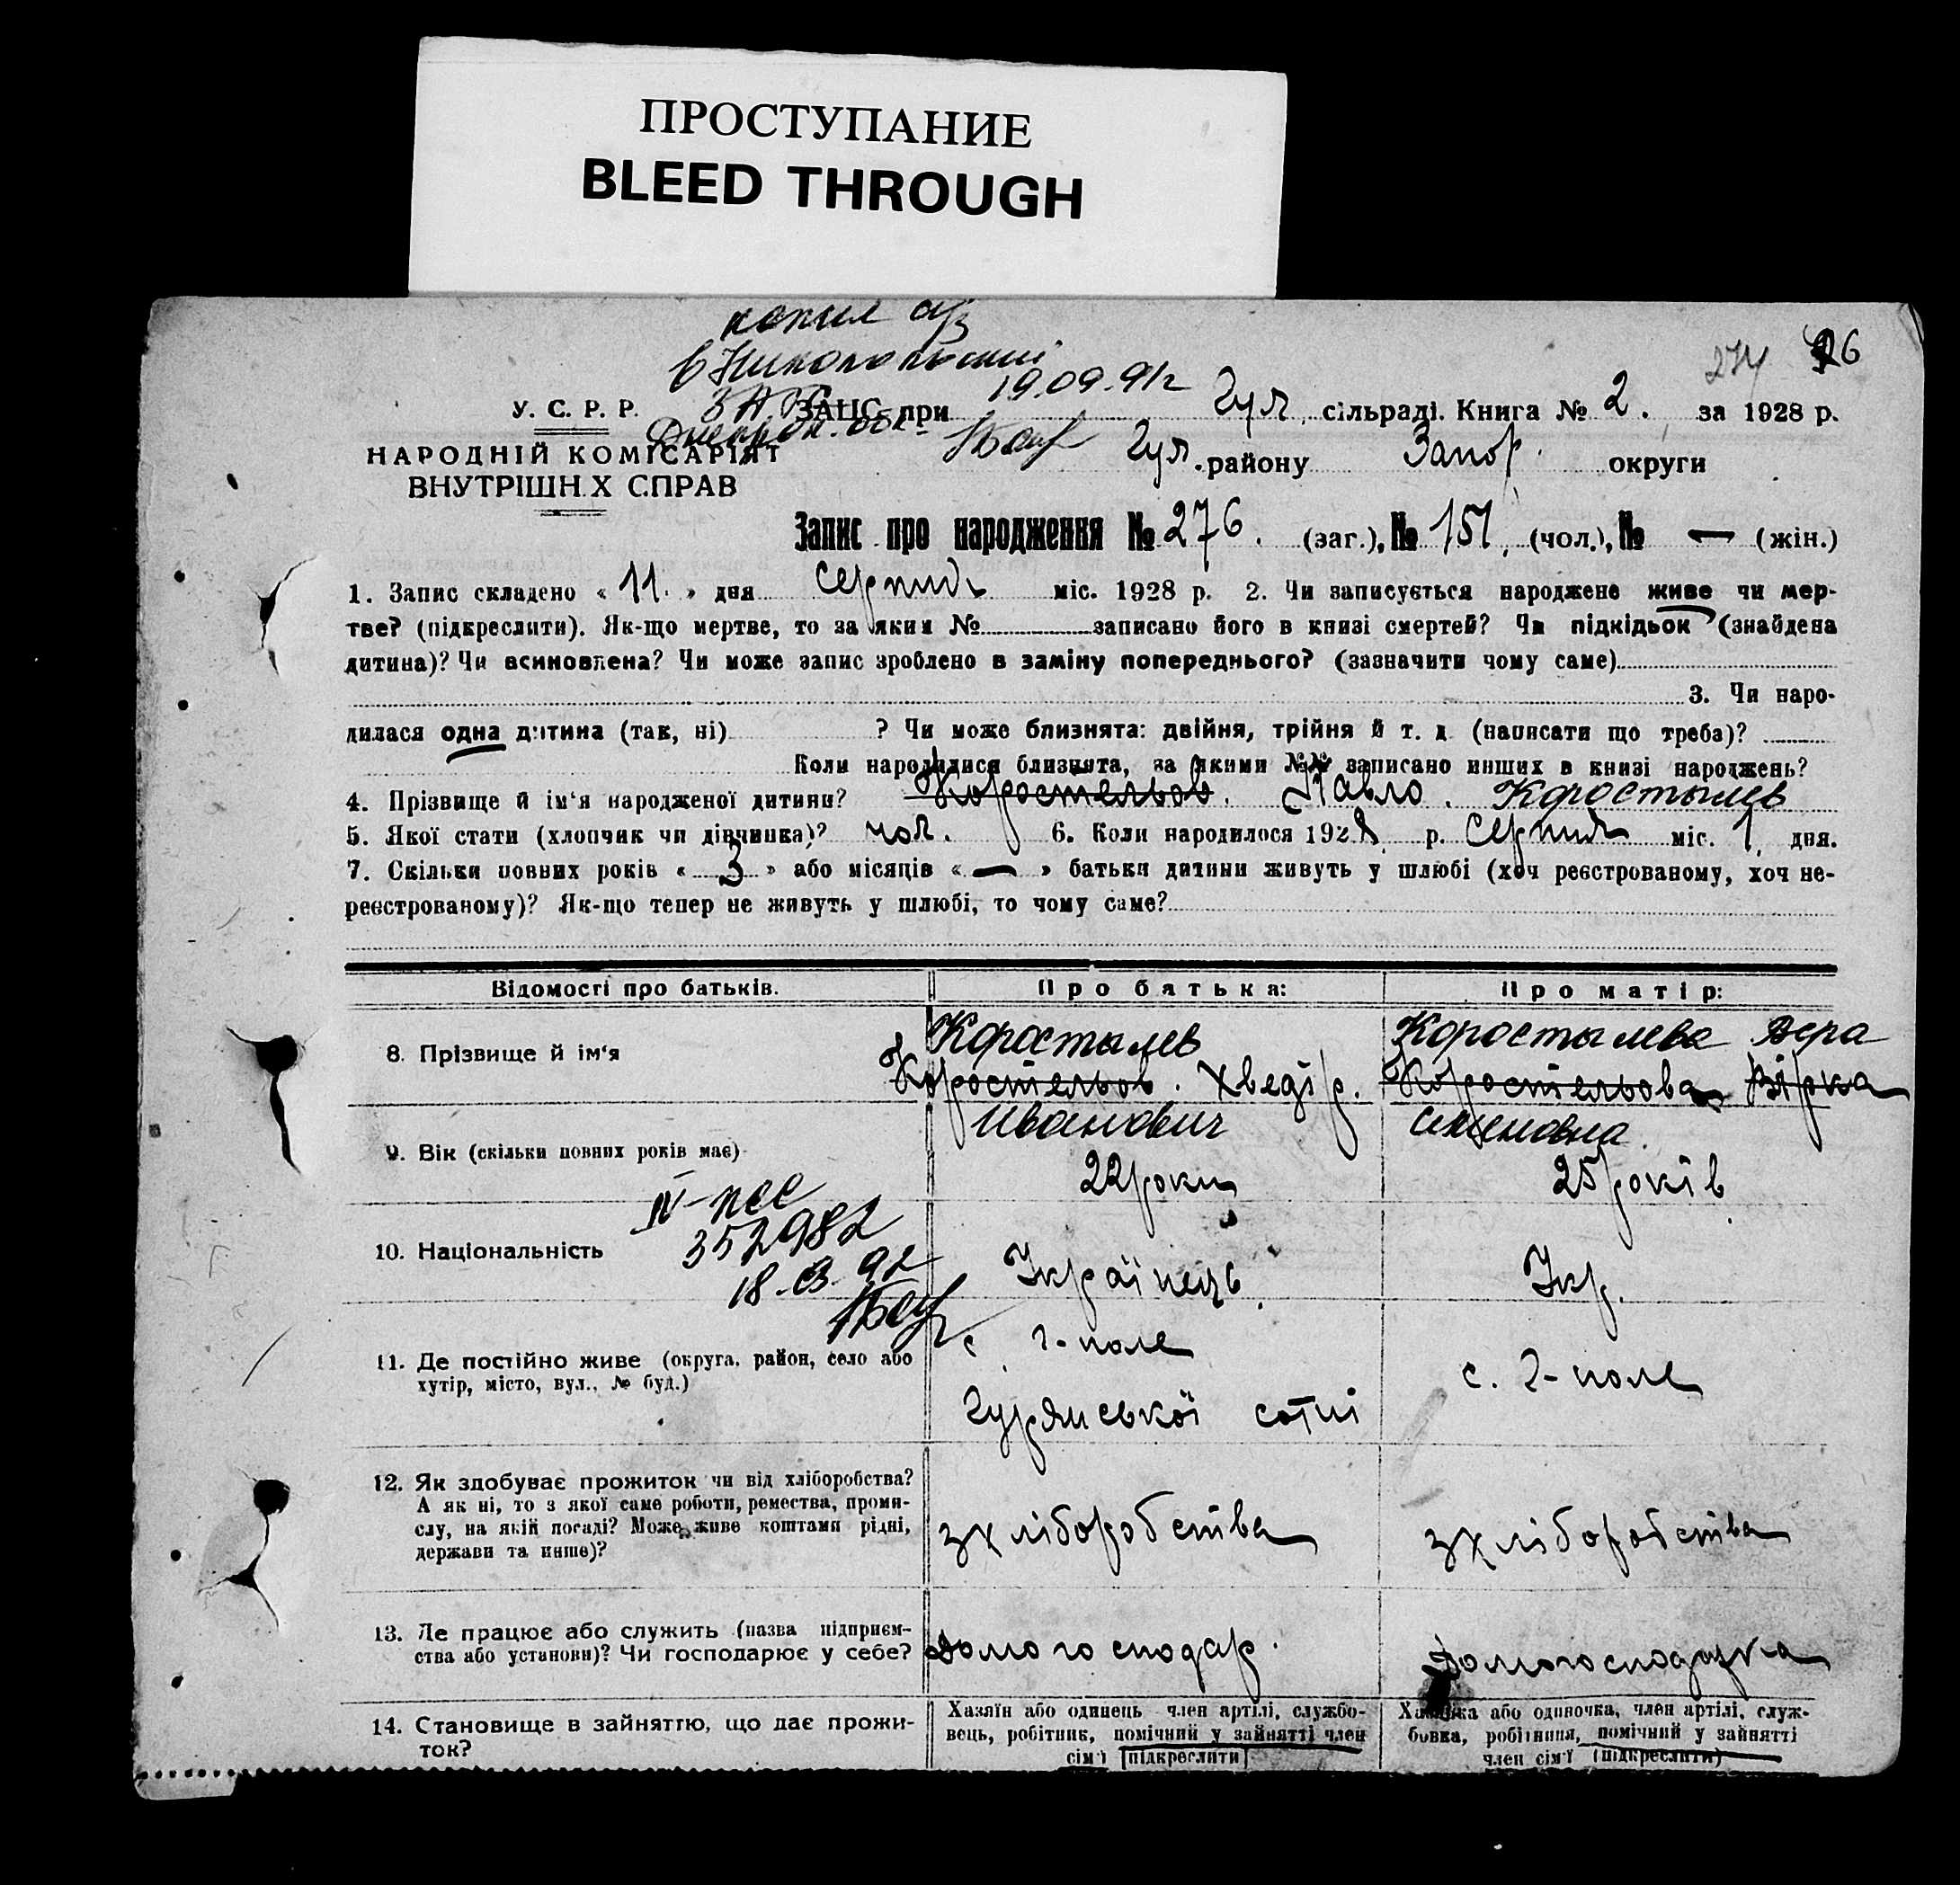 ПРОСТУПАНИЕ
BLEED THROUGH
копия
в Никопольский
19.09.91г
274 96
У. С. Р. Р. ЗАГС ЗАЦС при Гул. сільраді. Книга № 2. за 1928 р.
Днепроп. обл.
НАРОДНІЙ КОМІСАРІЯТ Гул. району Запор. округи
ВНУТРІШНІХ СПРАВ
Запис про народження № 276. (заг.), № 151, (чол.), № — (жін.)
1. Запис складено « 11. » дня серпня міс. 1928 р. 2. Чи записується народжене живе чи мер-
тве? (підкреслити). Як-що мертве, то за яким № записано його в книзі смертей? Чи підкідьок (знайдена
дитина)? Чи всиновлена? Чи може запис зроблено в заміну попереднього? (зазначити чому саме)
3. Чи наро-
дилася одна дитина (так, ні) ? Чи може близнята: двійня, трійня й т. д. (написати що треба)?
Коли народилися близнята, за якими №№ записано инших в книзі народжень?
4. Прізвище й ім‘я народженої дитини? Коростельов. Павло. Коростылев
5. Якої стати (хлопчик чи дівчинка)? чол. 6. Коли народилося 1928 р. серпня міс. 1 дня.
7. Скільки повних років « 3 » або місяців « — » батьки дитини живуть у шлюбі (хоч реєстрованому, хоч не-
реєстрованому)? Як-що тепер не живуть у шлюбі, то чому саме?
Відомості про батьків. Про батька: Про матір:
Коростылев Коростылева Вера
8. Прізвище й ім‘я Коростельов. Хведір. Коростельова Вірка
Иванович Семеновна
9. Вік (скільки повних років має) 22 роки 25 років
352982
10. Національність Українець Укр.
с. Г-поле
11. Де постійно живе (округа, район, село або с. Г-поле
хутір, місто, вул., № буд.)
Гурянської сотні
12. Як здобуває прожиток чи від хліборобства?
А як ні, то з якої саме роботи, ремества, проми-
слу, на якій посаді? Може живе коштами рідні, з хліборобства з хліборобства
держави та инше)?
13. Де працює або служить (назва підприєм-
ства або установи)? Чи господарює у себе? домогосподар. домогосподарка
14. Становище в зайняттю, що дає прожи- Хазяїн або одинець член артілі, службо- Хазяйка або одиночка, член артілі, служ-
ток? вець, робітник, помічний у зайнятті член бовка, робітниця, помічний у зайнятті
сім‘ї (підкреслити) член сім‘ї (підкреслити)